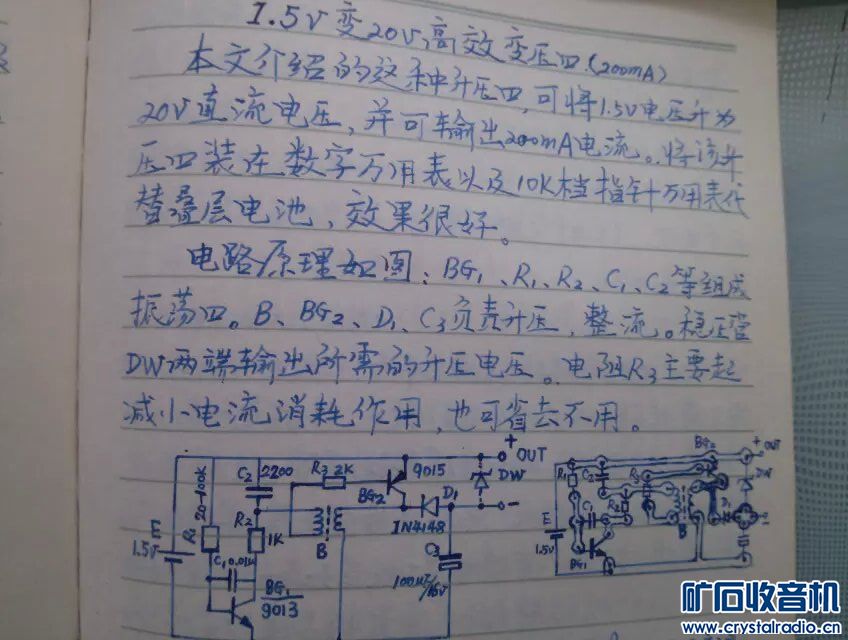 1.5V变20V高效变压四(200mA)
本文介绍的这种升压四,可将1.5V电压升为
20V直流电压,并可输出200mA电流。将该升
压四装在数字万用表以及10K档指针万用表代
替叠层电池,效果很好。
电路原理如图:BG1、R1、R2、C1、C2等组成
振荡四。B、BG2、D1、C3负责升压,整流。稳压管
DW两端输出所需的升压电压。电阻R3主要起
减小电流消耗作用,也可省去不用。
+
OUT
C2 2200
R3 2K
9015
BG2
DW
-
D1
IN4148
E
1.5V
R1
20-100K
R2
1K
B
C1 0.01u
BG1
9013
C3
100u/16V
BG2
+
OUT
DW
R1
C2
R3
C1
R2
B
D1
E
1.5V
BG1
矿石收音机
www.crystalradio.cn